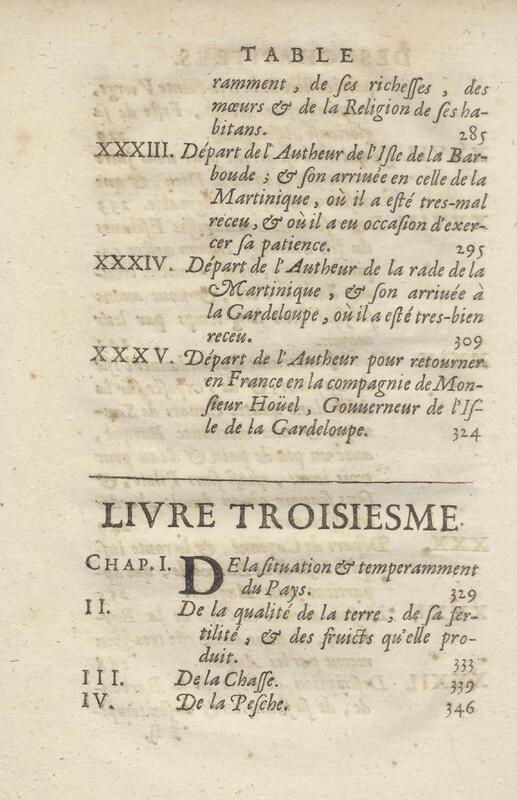 TABLE
ramment, de ſes richeſſes, des
mœurs & de la Religion de ſes ha-
bitans. 285
XXXIII. Départ de l'Autheur de l'Iſle de la Bar-
boude ; & ſon arriuée en celle de la
Martinique, où il a eſté tres-mal
receu, & où il a eu occaſion d'exer-
cer ſa patience. 295
XXXIV. Départ de l'Autheur de la rade de la
Martinique, & ſon arriuée à
la Gardeloupe, où il a eſté tres-bien
receu. 309
XXXV. Départ de l'Autheur pour retourner
en France en la compagnie de Mon-
ſieur Hoüel, Gouuerneur de l'Iſ-
le de la Gardeloupe. 324
LIVRE TROISIESME.
CHAP. I. DE la ſituation & temperamment
du Pays. 329
II. De la qualité de la terre, de ſa fer-
tilité, & des fruicts qu'elle pro-
duit. 333
III. De la Chaſſe. 339
IV. De la Peſche. 346